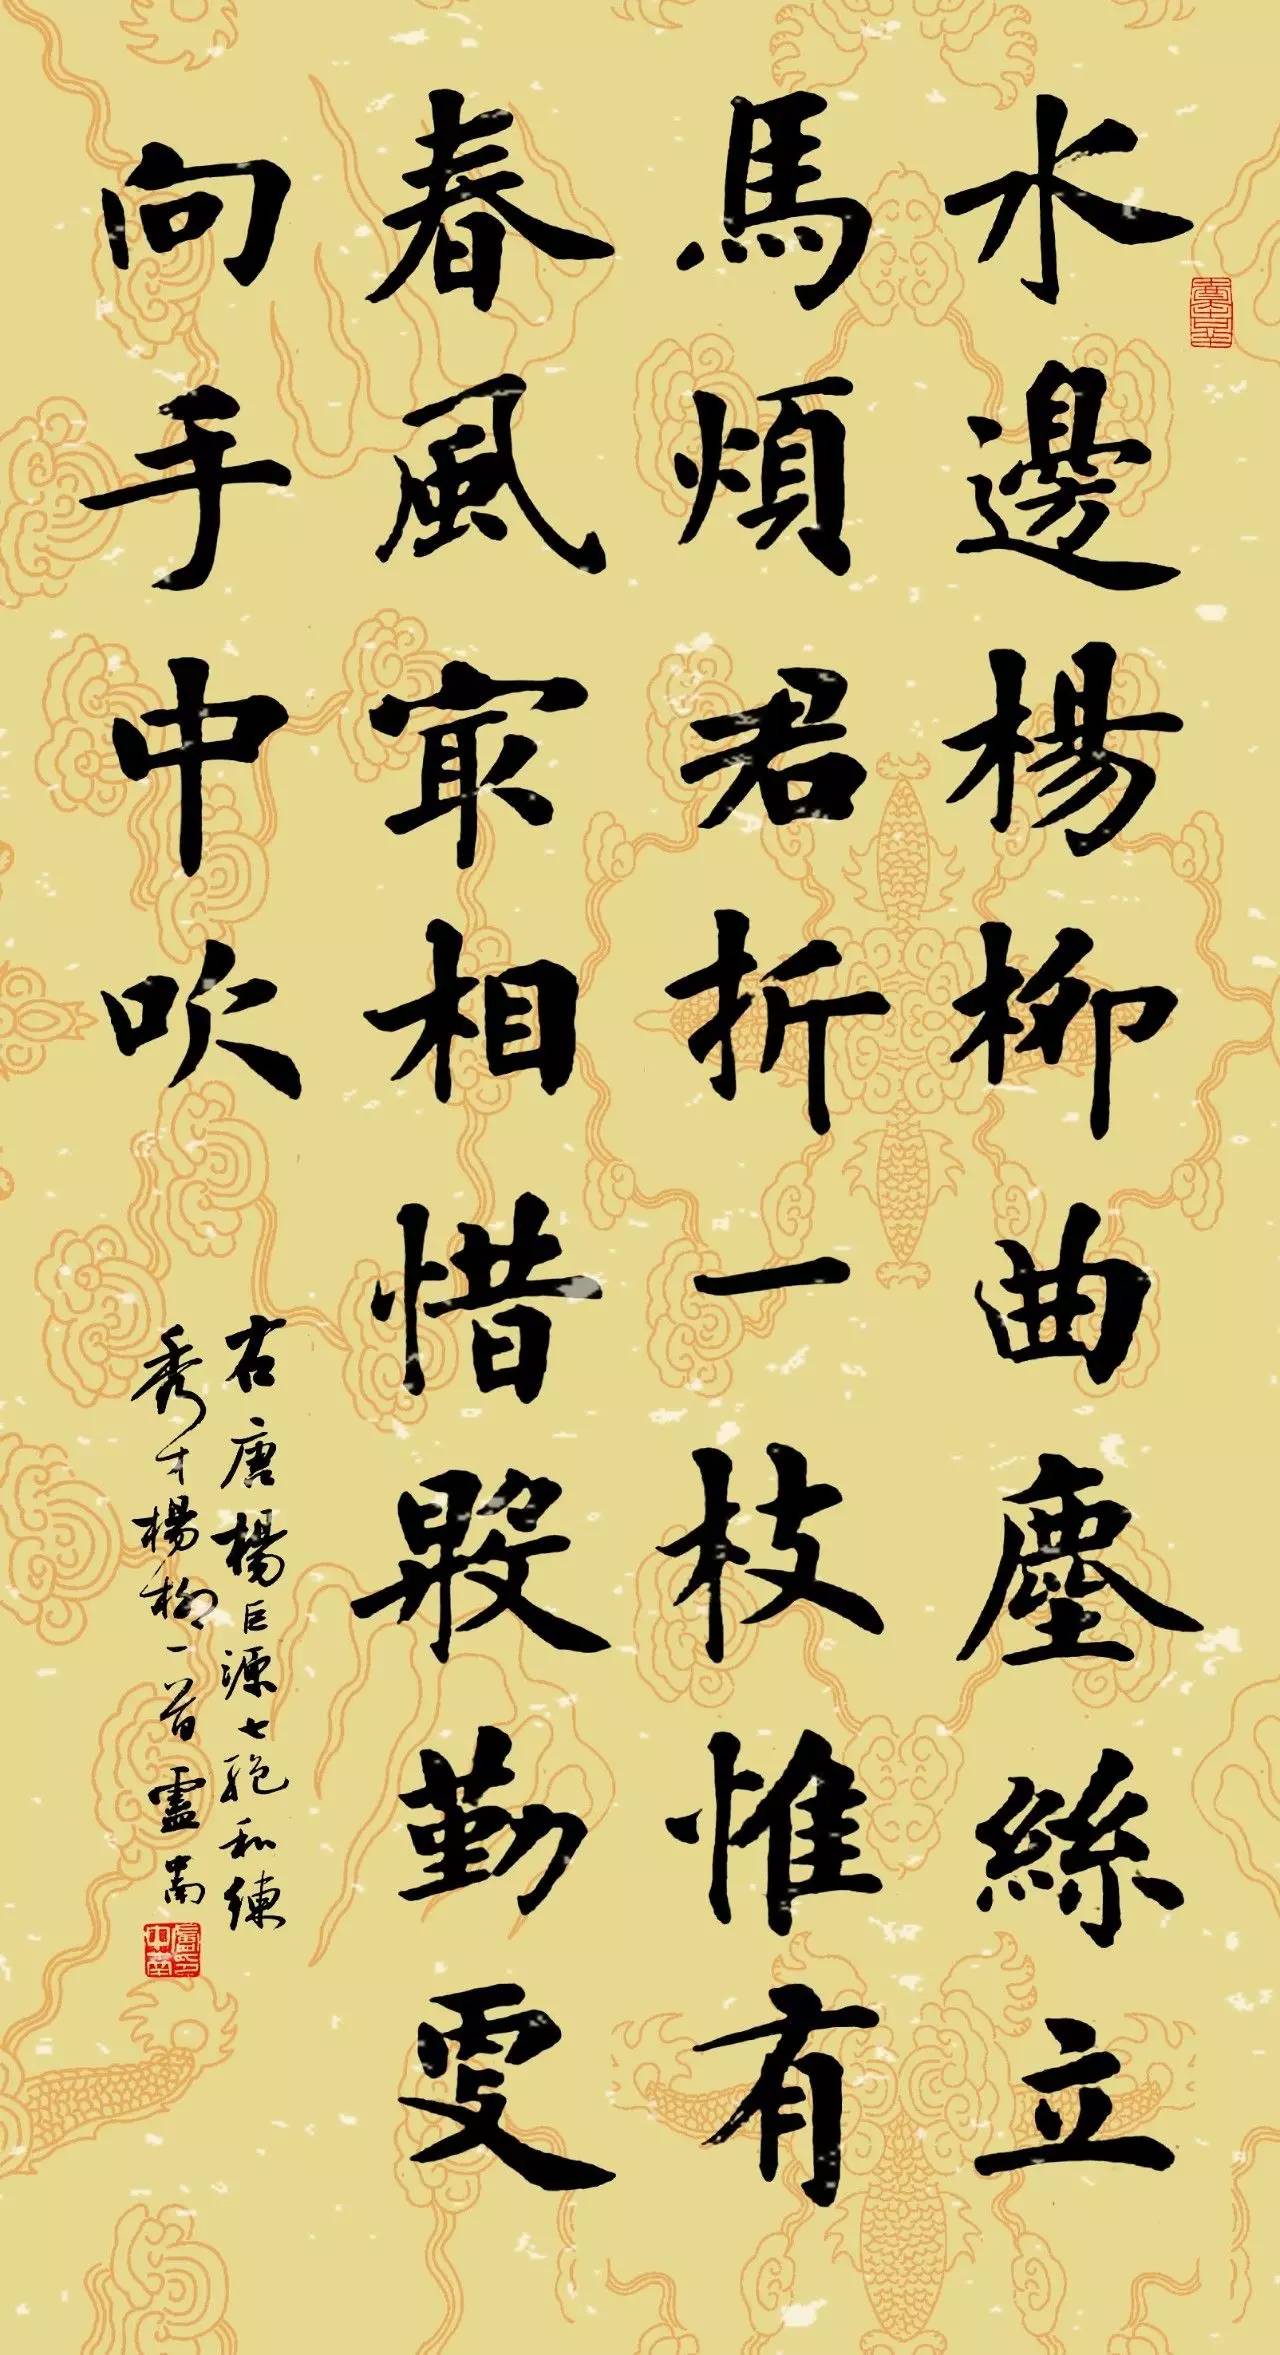 水邊楊柳曲塵絲立
馬煩君折一枝惟有
春風最相惜殷勤更
向手中吹
右唐楊巨源七絕和練
秀才楊柳一首盧中南
盧中南印